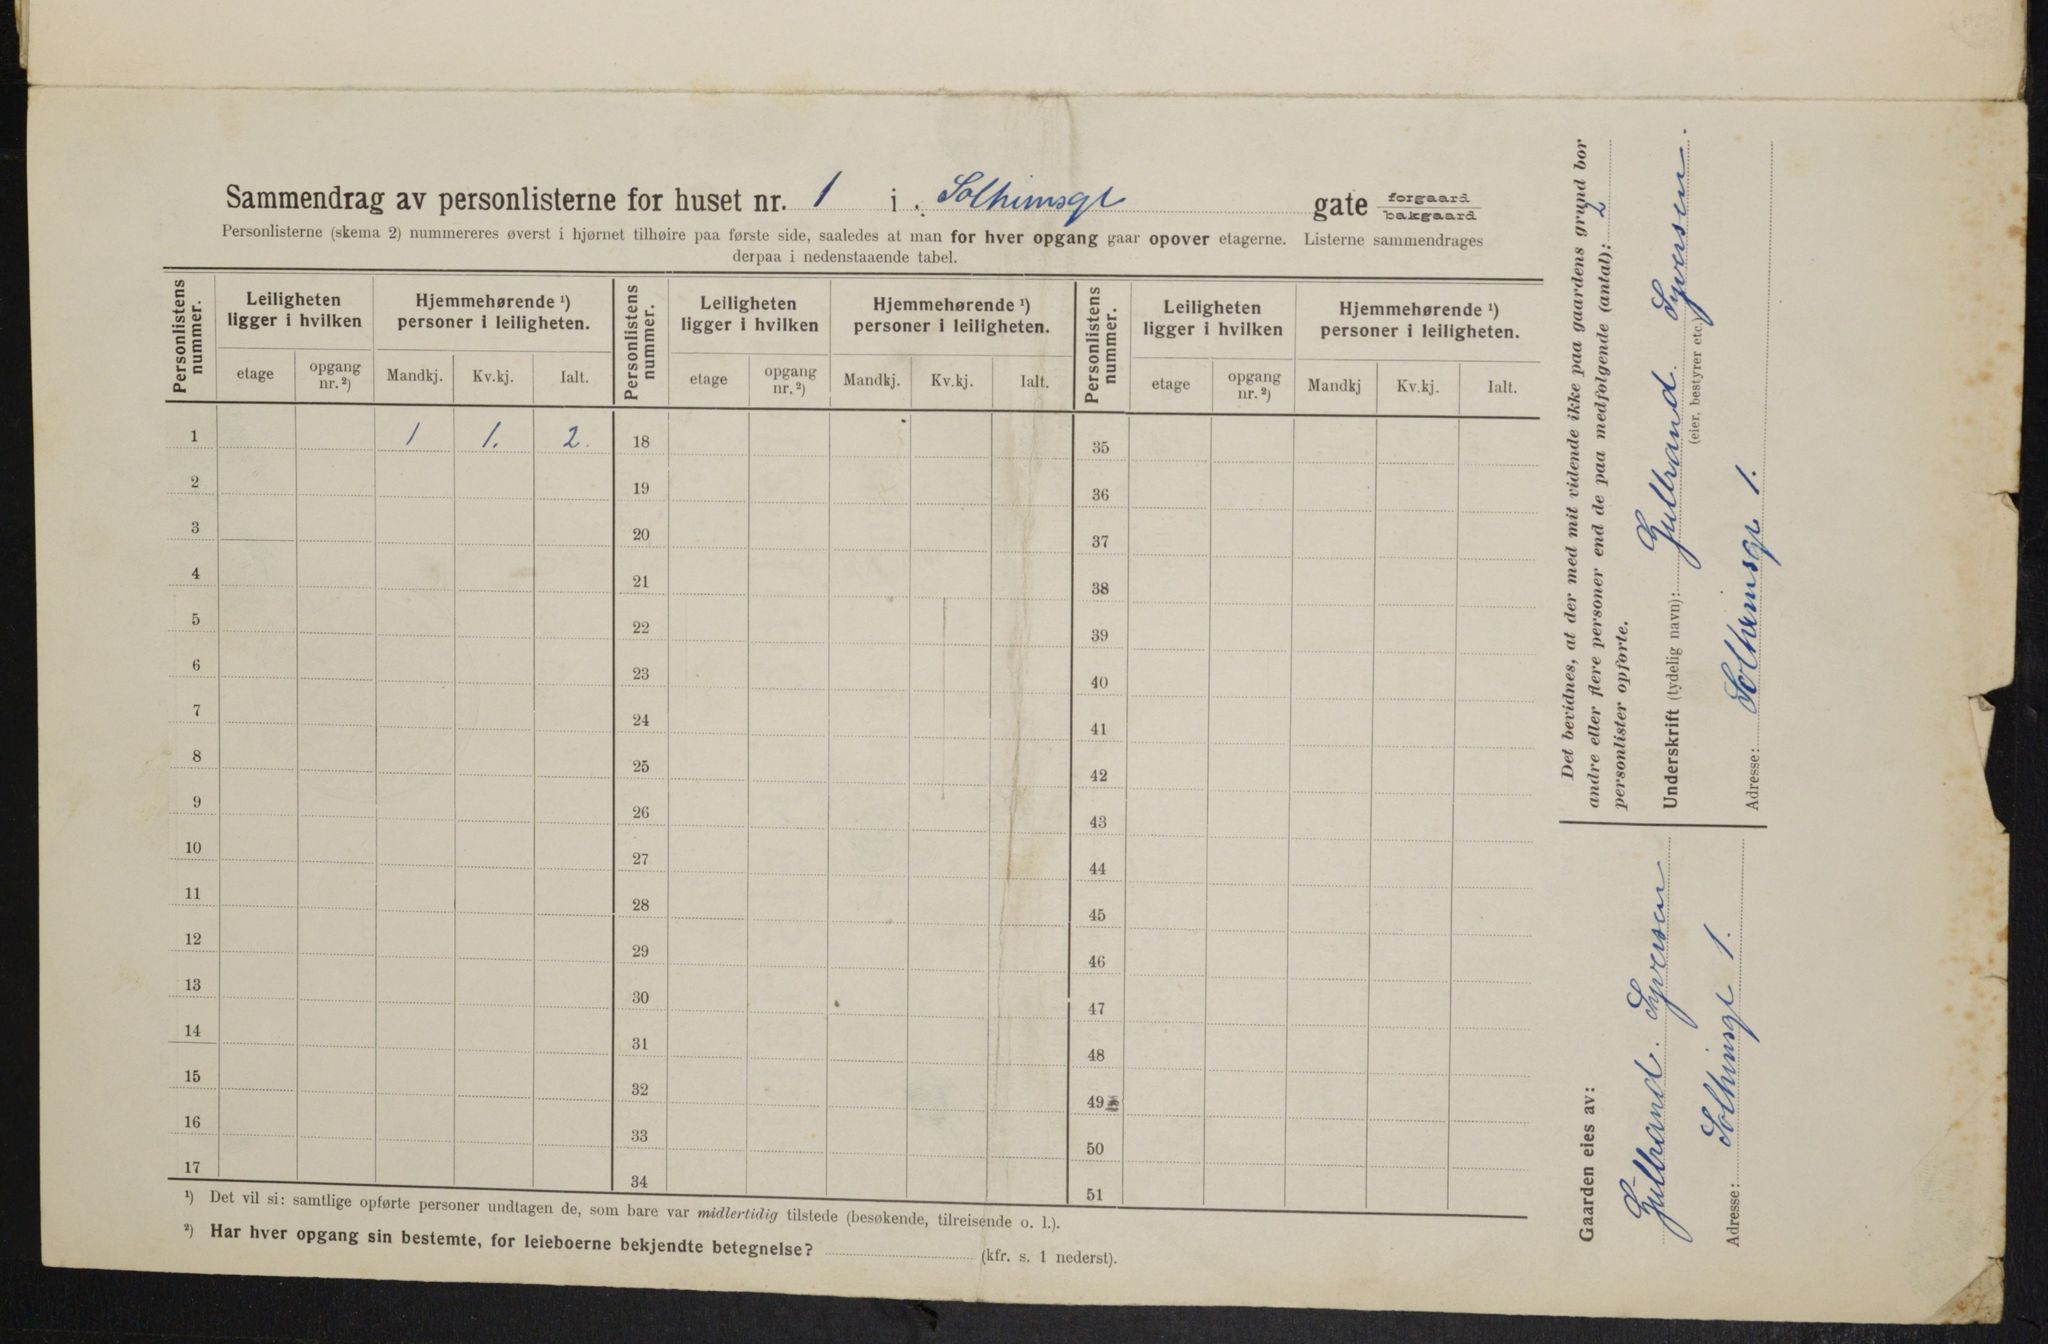 Sammendrag av personlisterne for huset nr. 1 i Solhimsgt gate forgaard bakgaard
Personlisterne (skema 2) nummereres øverst i hjørnet tilhøire paa første side, saaledes at man for hver opgang gaar opover etagerne. Listerne sammendrages
derpaa i nedenstaaende tabel.
Personlistens nummer. Leiligheten ligger i hvilken Hjemmehørende ¹) personer i leiligheten. Personlistens nummer. Leiligheten ligger i hvilken Hjemmehørende ¹) personer i leiligheten. Personlistens nummer. Leiligheten ligger i hvilken Hjemmehørende ¹) personer i leiligheten.
etage opgang nr. ²) Mandkj. Kv.kj. Ialt. etage opgang nr. ²) Mandkj. Kv.kj. Ialt. etage opgang nr. ²) Mandkj Kv.kj. Ialt.
1 1 1. 2. 18 35
2 19 36
3 20 37
4 21 38
5 22 39
6 23 40
7 24 41
8 25 42
9 26 43
10 27 44
11 28 45
12 29 46
13 30 47
14 31 48
15 32 49
16 33 50
17 34 51
¹) Det vil si: samtlige opførte personer undtagen de, som bare var midlertidig tilstede (besøkende, tilreisende o. l.).
²) Har hver opgang sin bestemte, for leieboerne bekjendte betegnelse? (kfr. s. 1 nederst).
Det bevidnes, at der med mit vidende ikke paa gaardens grund bor
andre eller flere personer end de paa medfølgende (antal): 2
personlister opførte.
Underskrift (tydelig navn): Gulbrand Syversen.
(eier, bestyrer etc.)
Adresse: Solheimsgt 1.
Gaarden eies av:
Gulbrand Syversen
Adresse: Solhimsgt 1.